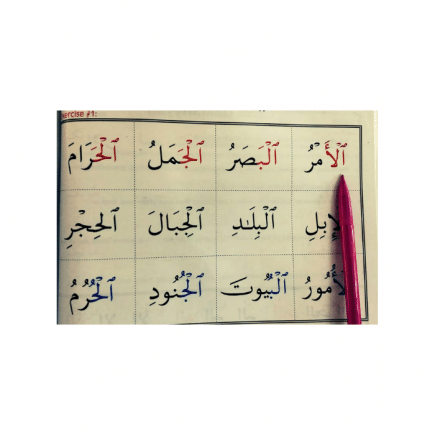 ercise #1:
ٱلْأَمْرُ ٱلْبَصَرُ ٱلْجَمَلُ ٱلْحَرَامَ
ٱلْبِلَـٰدِ ٱلْجِبَالَ ٱلْحِجْرِ
ٱلْبُيُوتَ ٱلْجُنُودِ ٱلْحُرُمُ